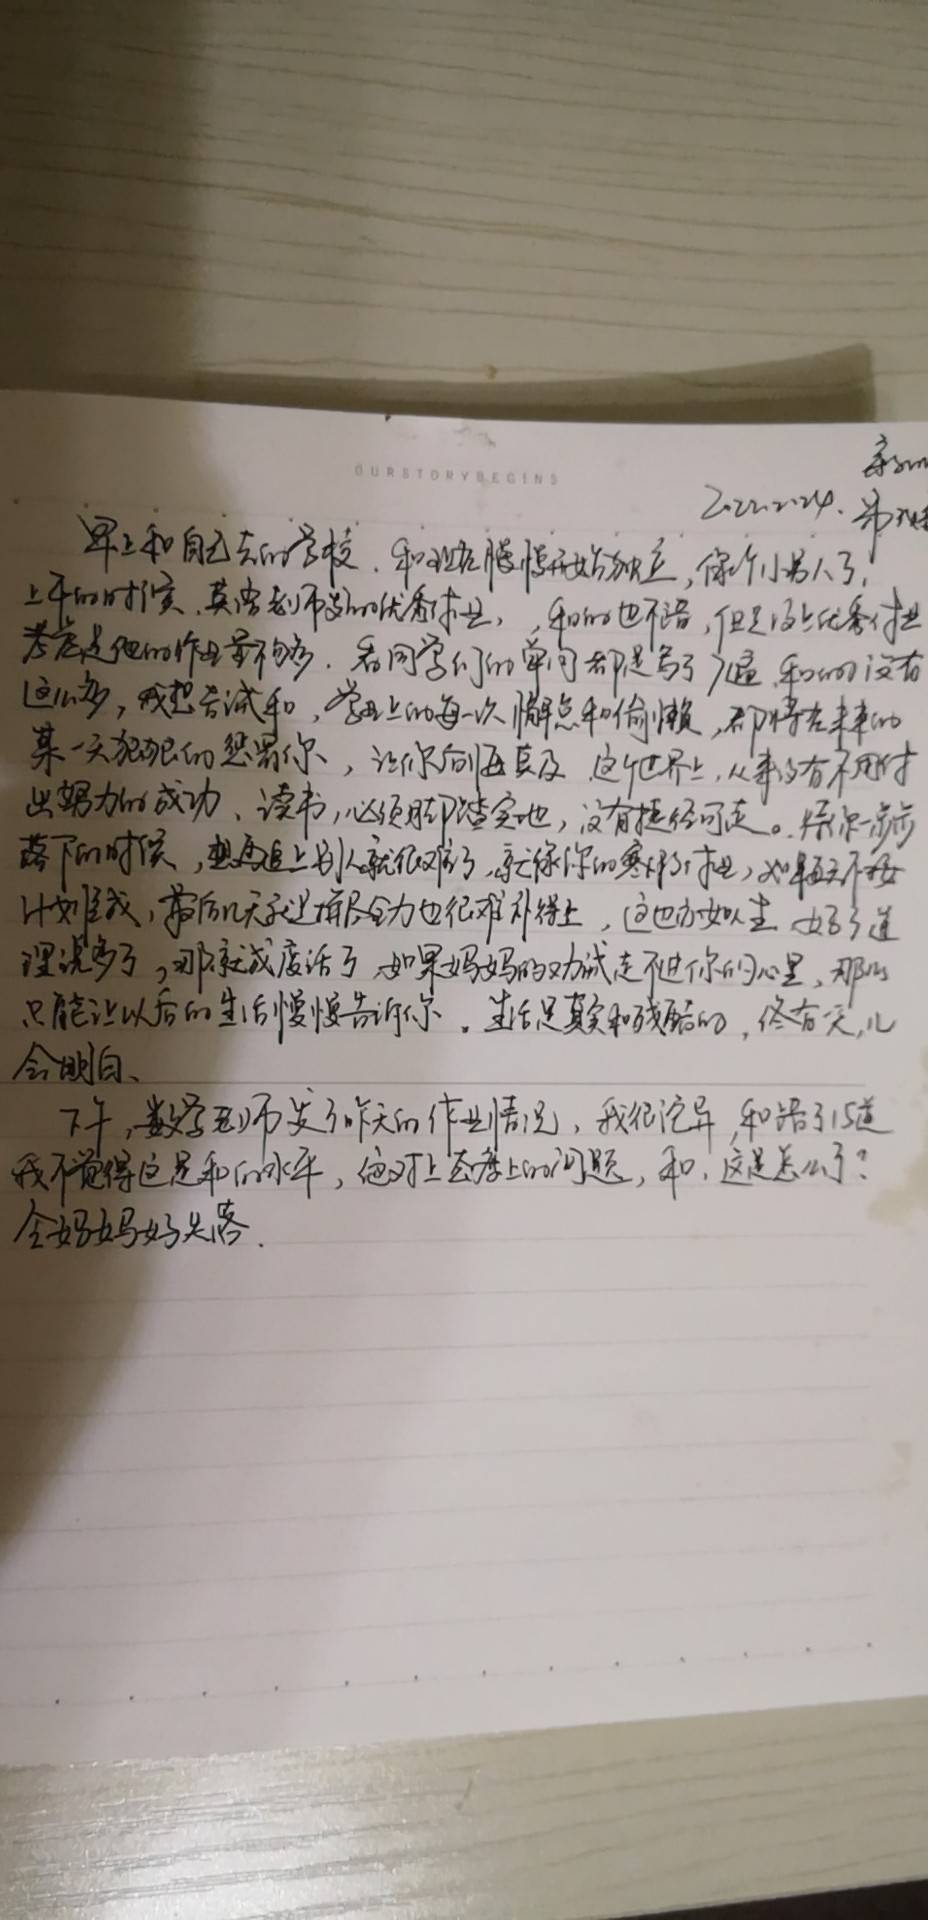 OURSTORYBEGINS
2022.2.24. 第
早上和自己去的学校，和现在慢慢开始独立，像个小男人了，
上午的时候，英语老师发的优秀作业，，和的也不错，但是没上优秀作业
考虑是他的作业量不够多，看同学们的单词都是写了7遍，和的没有
这么多，我想告诫和，学业上的每一次懈怠和偷懒，都将在未来的
某一天狠狠的惩罚你，让你后悔莫及，这个世界上，从来没有不用付
出努力的成功，读书，必须脚踏实地，没有捷径可走。你一步步
落下的时候，想再追上别人就很难了，就像你的寒假作业，如果每天不按
计划完成，最后几天就是拼尽全力也很难补得上，这也亦如人生，好了道
理说多了，那就成废话了，如果妈妈的劝诫走不进你的心里，那么
只能让以后的生活慢慢告诉你。生活是真实和残酷的，终有一天，儿
会明白、
下午，数学老师发了昨天的作业情况，我很诧异，和错了15道
我不觉得这是和的水平，绝对上态度上的问题，和，这是怎么了？
令妈妈好失落.